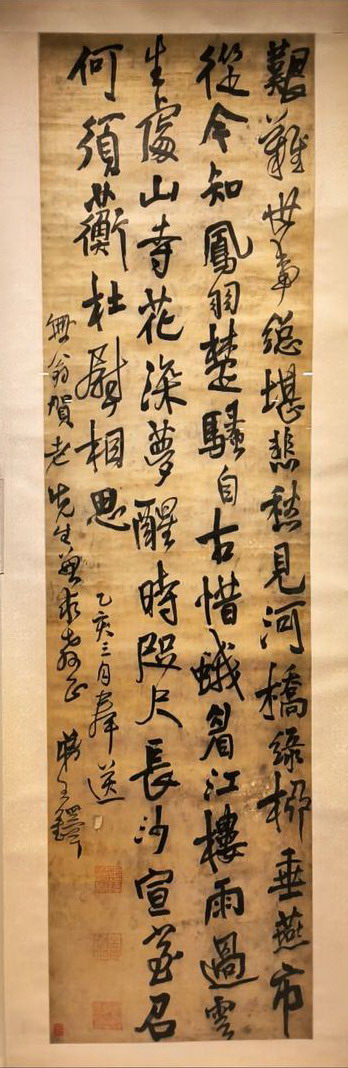 艱難世事總堪悲愁見河橋綠柳垂燕市
從今知鳳羽楚騷自古惜蛾眉江樓雨過雲
生處山寺花深夢醒時咫尺長沙宣室召
何須蘅杜慰相思
乙亥三月奉送
無翁賀老先生兼求教正 王鐸